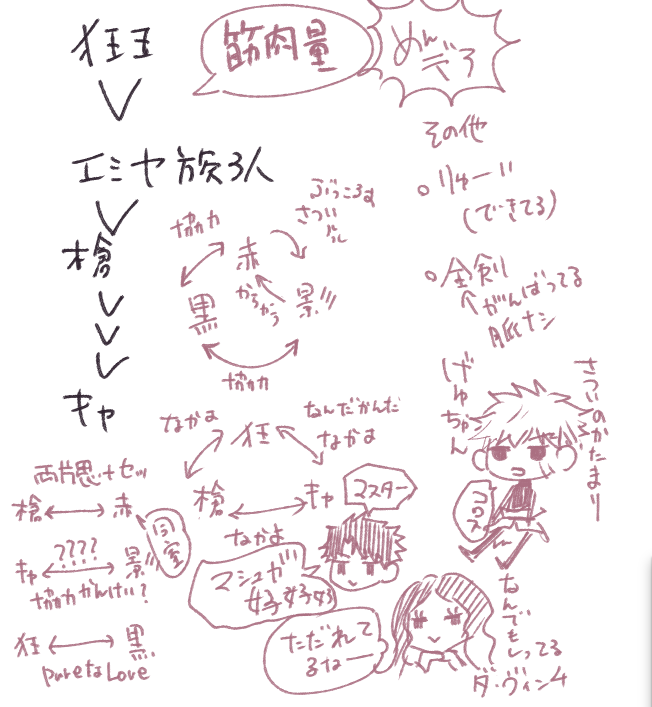 狂王
筋肉量
めんどろ
エミヤ放る人
槍
キャ
協力
赤
ぶっころす
さつい
バル
黒
からかう
影
協力
その他
りゅーい
(できてる)
全剣
がんばってる
脈ナシ
さついのかたまりー
げゅちゃん
コロス
なかよ
狂
なんだかんだ
なかよ
槍
キャ
なかよ
両片思+セッ
槍
赤
同室
キャ
????
影
協力かんけい?
狂
黒
pureなLove
マスター
マシュが
好好好
ただれて
るなー
なんでもしってる
ダ・ヴィン4